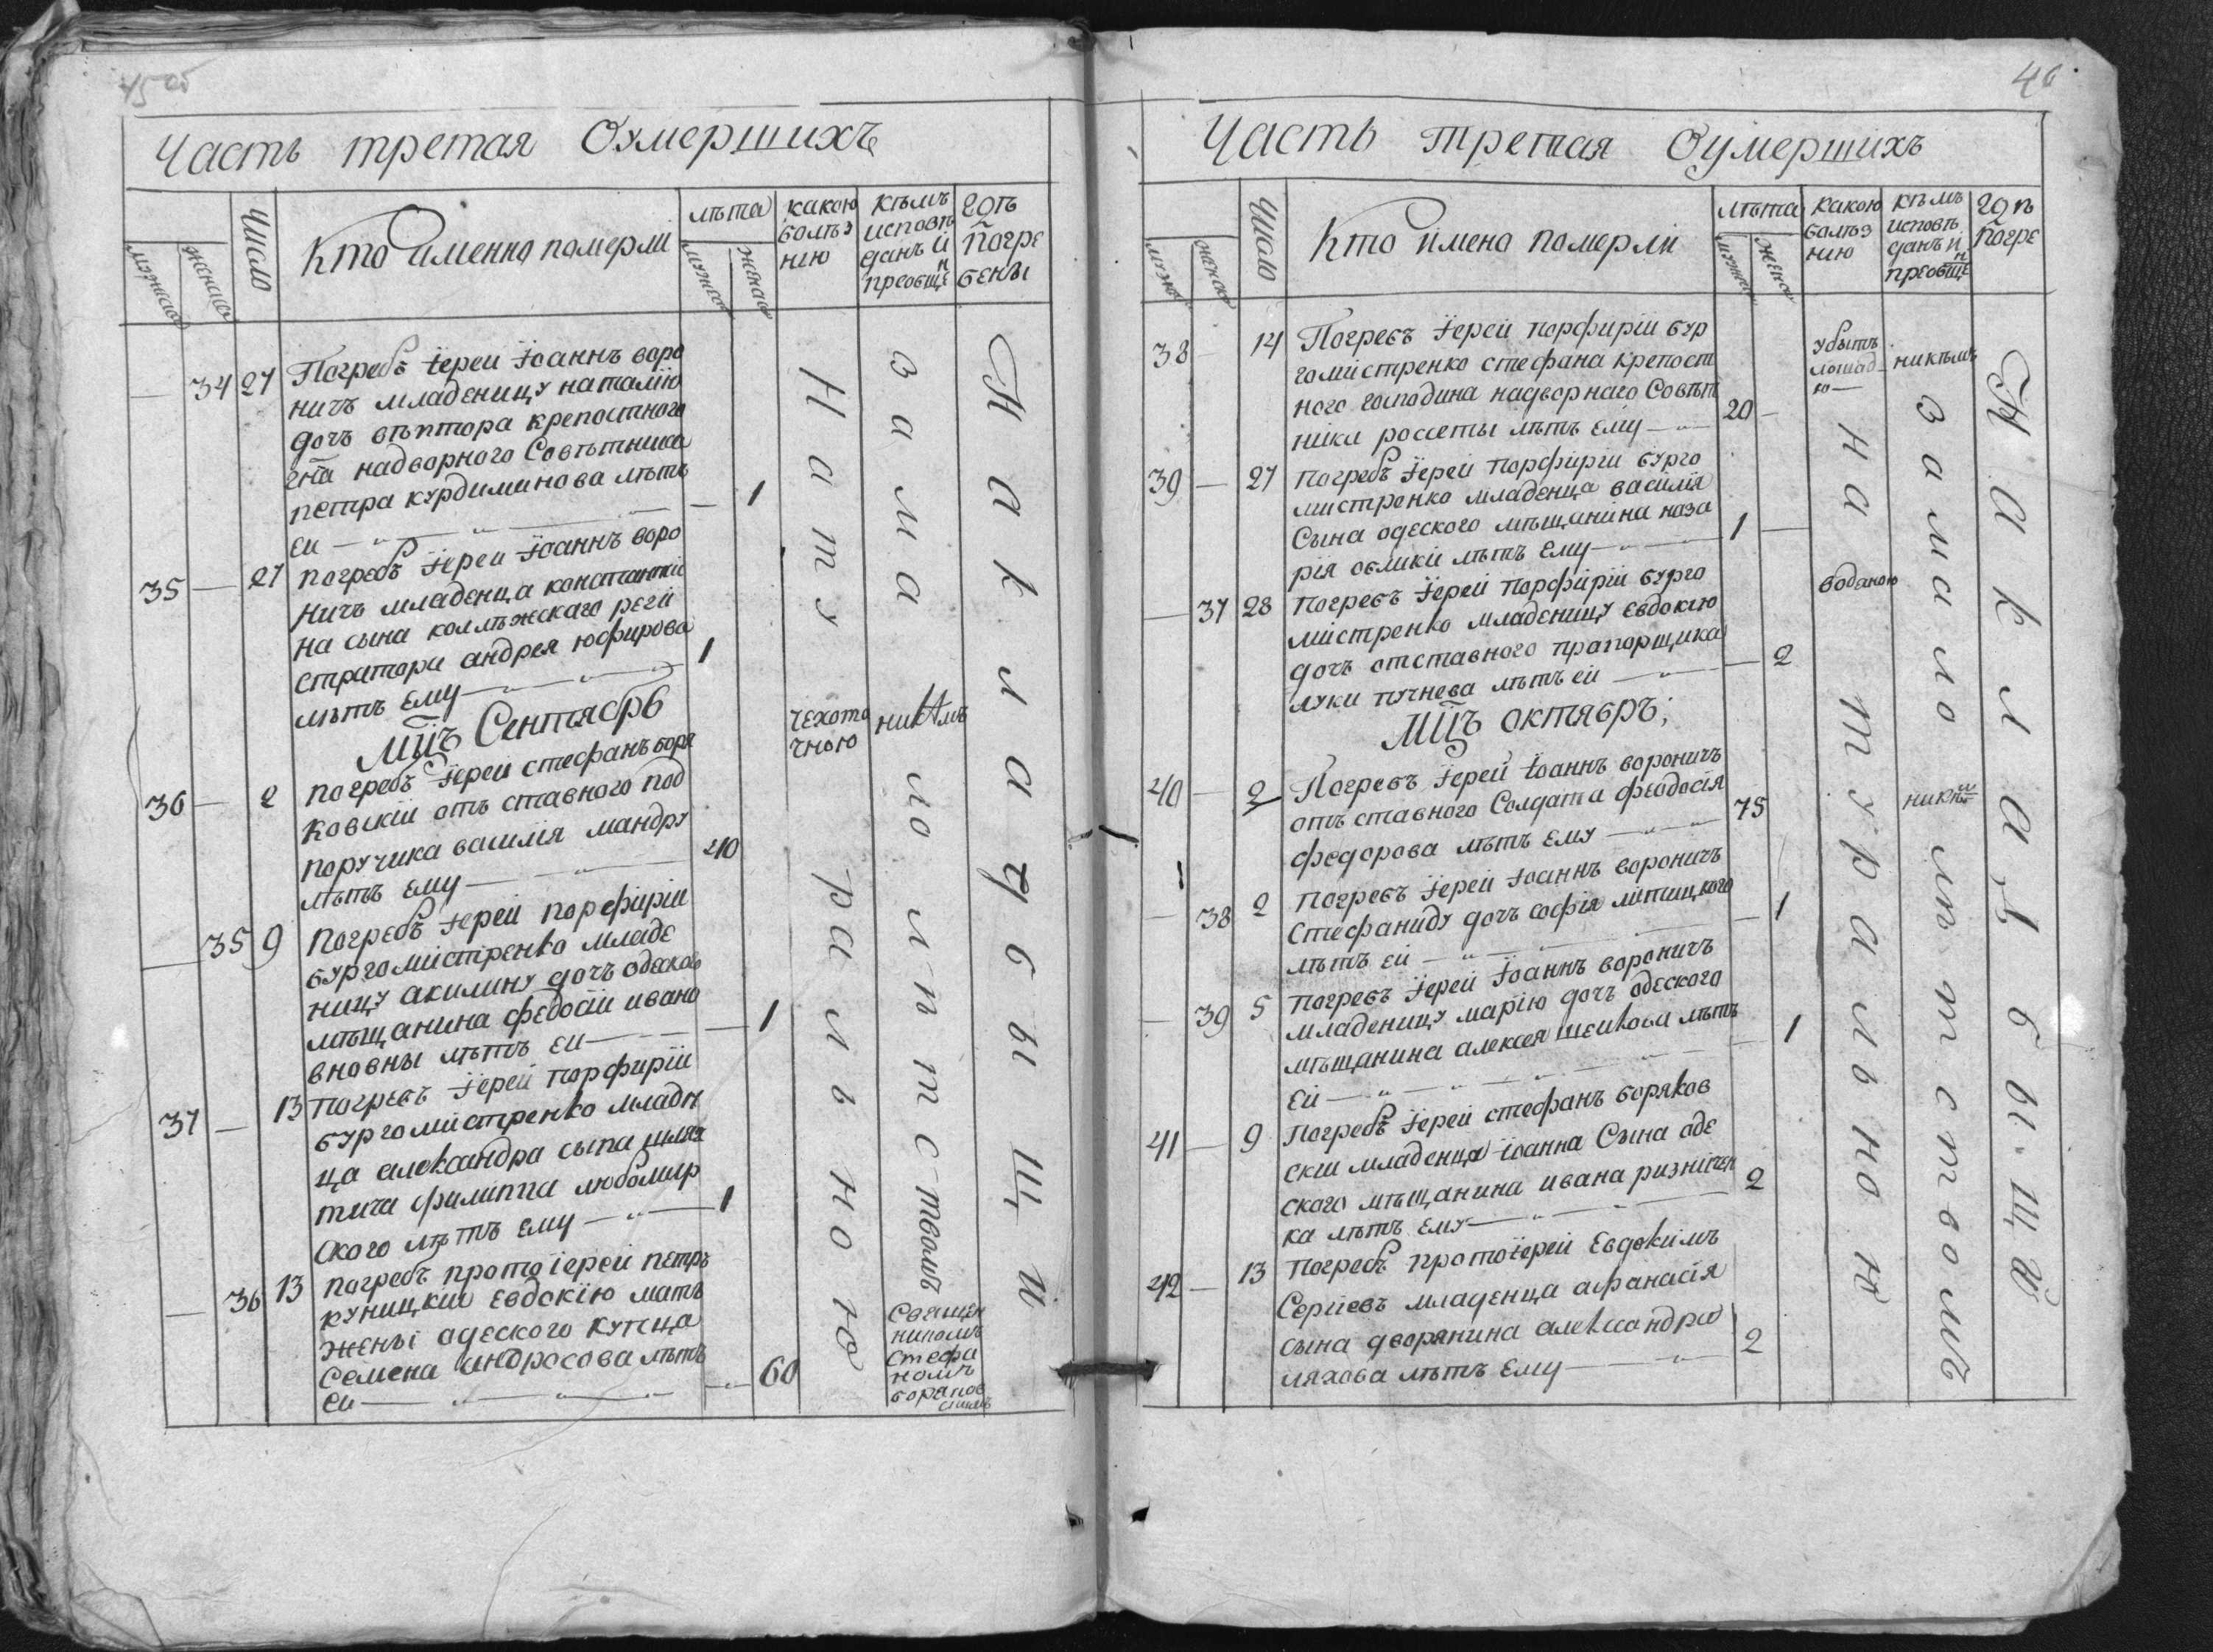 45 об
Часть третая Оумершихъ
Число
Кто именно померли
лѣта
какою болѣзнию
кѣмъ исповѣданъ й преобще
гдѣ погребены
34 27 Погребъ Іерей Іоаннъ воро
ничъ младеницу наталїю
дочъ вѣктора крепостного
гна надворного Совѣтника
петра курдиминова лѣтъ
Ей 1
35 27 погребъ Іерей Іоаннъ воро
ничъ младенца константи
на сына коллѣжскаго реги
стратора андрея юфирова
лѣтъ ему 1
Мцъ Сентябрь
36 2 погребъ Іерей стефанъ боря
ковскїй отъ ставного под
поручика василїя мандру
лѣтъ ему 40
чехото
чною
никѣмъ
35 9 Погребъ Іерей порфирїй
бургомистренко младе
ницу акилину дочъ одеского
мѣщанина федосїи ивано
вновны лѣтъ ей 1
37 13 погребъ Іерей порфирїй
бургомистренко младѣ
ца александра сына шлях
тича филиппа любомир
ского лѣтъ ему 1
36 13 погребъ протоїерей петръ
куницкїй Евдокїю мать
жены одеского купца
семена андросова лѣтъ
ей 60
Священ
никомъ
Стефа
номъ
боряков
скимъ
Натуральною
Замалолѣтством
На кладбыщи
46
Часть третая Оумершихъ
Число
Кто имено померли
лѣта
какою болѣзнию
кѣмъ исповѣданъ й преобще
гдѣ погре
38 14 Погребъ Іерей порфирїй бур
гомистренко стефана крепост
ного господина надворнаго Совѣт
ника россеты лѣтъ ему 20
убытъ
лошад
ю
никѣмъ
39 27 погребъ Іерей порфирїй бурго
мистренко младенца василїя
Сына одеского мѣщанина наза
рїя овлики лѣтъ Ему 1
37 28 погребъ Іерей порфирїй бурго
мистренко младеницу Евдокїю
дочъ отставного прапорщика
луки пучнева лѣтъ ей 2
водяною
Мцъ октябръ;
40 2 Погребъ Іерей Іоаннъ вороничъ
отъ ставного Солдата феодосїя
федорова лѣтъ ему 75
никѣм
38 2 погребъ Іерей Іоаннъ вороничъ
Стефаниду дочъ софїя липицкого
лѣтъ ей 1
39 5 погребъ Іерей Іоаннъ вороничъ
младеницу марїю дочъ одеского
мѣщанина алексея шейкоси лѣтъ
ей 1
41 9 Погребъ Іерей стефанъ боряков
скїй младенца іоанна Сына оде
ского мѣщанина ивана ризничен
ка лѣтъ ему 2
42 13 погребъ протоїерей Евдокимъ
Сергіевъ младенца афанасїя
сына дворянина александра
ляхова лѣтъ ему 2
натуральною
Замалолѣтством
На кладбыщѣ